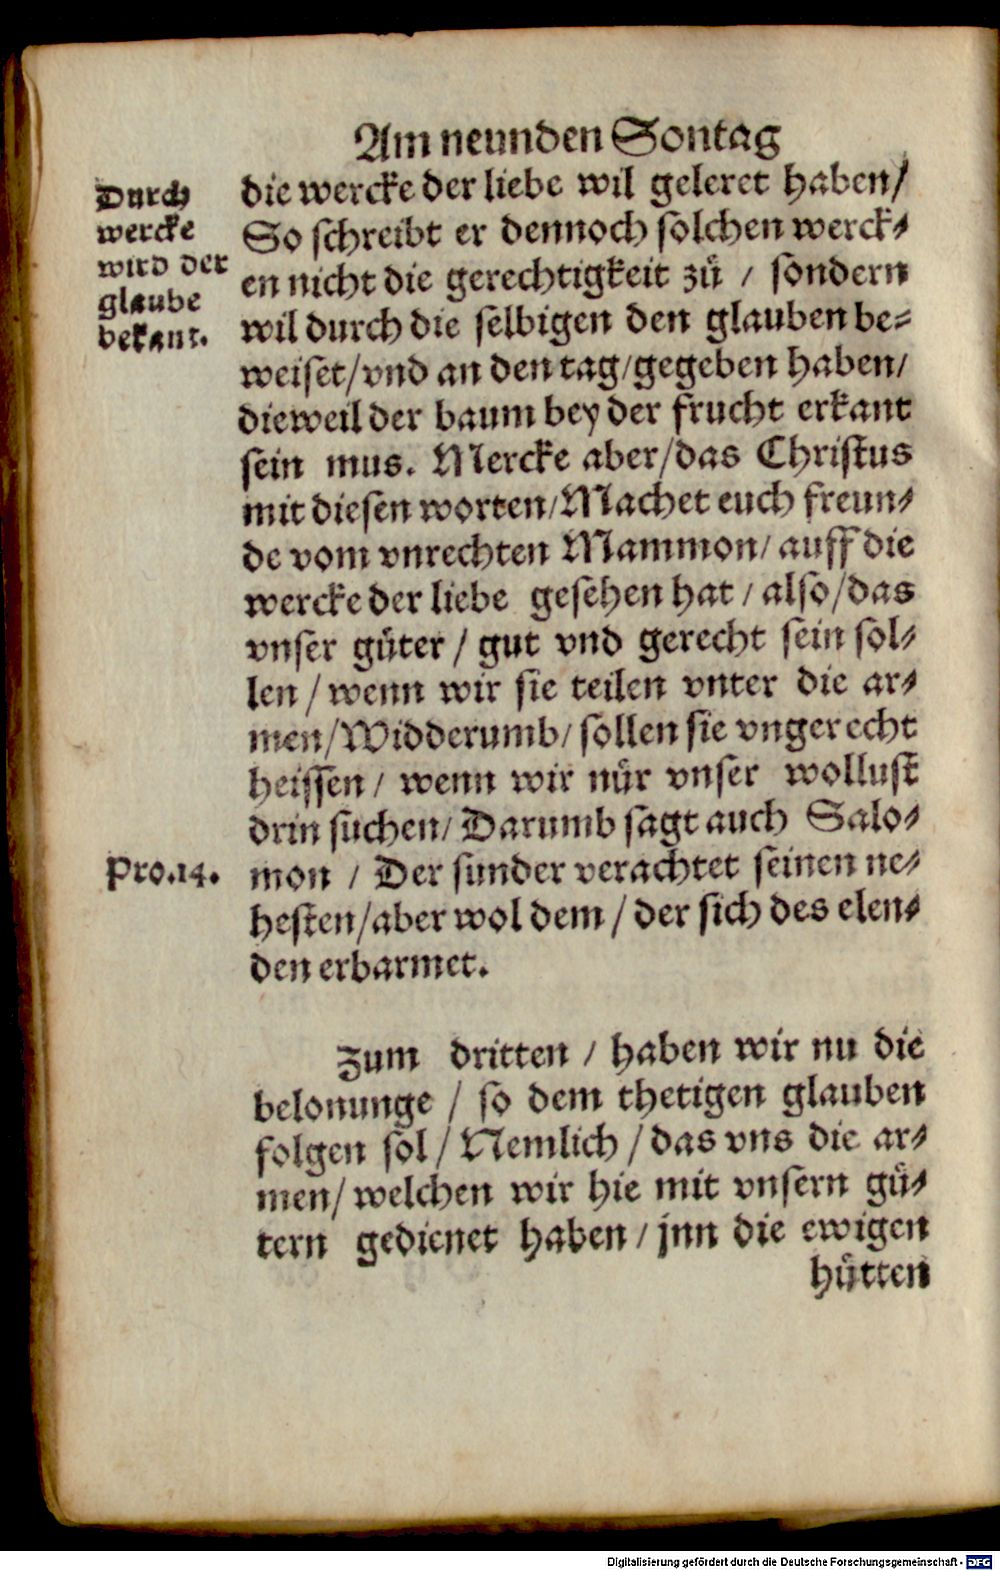 Am neunden Sontag
Durch
wercke
wird der
glaube
bekant.
die wercke der liebe wil geleret haben/
So schreibt er dennoch solchen werck-
en nicht die gerechtigkeit zů / sondern
wil durch die selbigen den glauben be-
weiset/vnd an den tag/gegeben haben/
dieweil der baum bey der frucht erkant
sein mus. Mercke aber/das Christus
mit diesen worten/Machet euch freun-
de vom vnrechten Mammon/ auff die
wercke der liebe gesehen hat / also/das
vnser güter / gut vnd gerecht sein sol-
len / wenn wir sie teilen vnter die ar-
men/Widderumb/ sollen sie vngerecht
heissen / wenn wir nür vnser wollust
drin suchen/ Darumb sagt auch Salo-
Pro.14.
mon / Der sunder verachtet seinen ne-
hesten/aber wol dem / der sich des elen-
den erbarmet.
Zum dritten / haben wir nu die
belonunge / so dem thetigen glauben
folgen sol / Nemlich / das vns die ar-
men/ welchen wir hie mit vnsern gü-
tern gedienet haben / jnn die ewigen
hütten
Digitalisierung gefördert durch die Deutsche Forschungsgemeinschaft - DFG